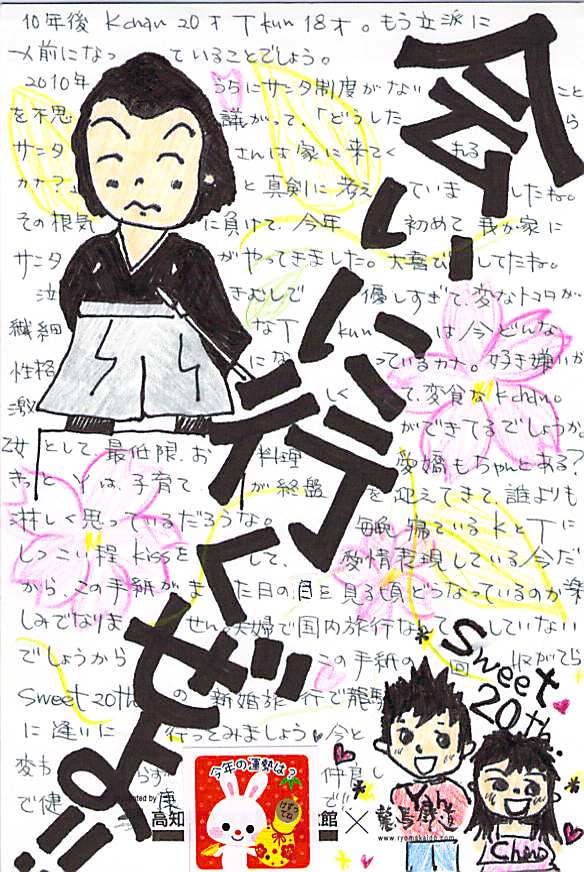 10年後 Kchan 20才 Tkun 18才。もう立派に
一人前になっていることでしょう。
2010年 うちにサンタ制度がないこと
を不思議がって、「どうしたら
サンタさんは家に来てくれる
カナ?」と真剣に考えていましたね。
その根気に負けて、今年初めて我が家に
サンタがやってきました。大喜びしてたね。
泣きむしで優しすぎて、変なトコロが
繊細なTkunは今どんな
性格になっているカナ。好き嫌いが
激しくて、変食なKchan。
女として、最低限、お料理ができてるでしょうか。
愛嬌もちゃんとある?
きっとYは、子育てが終盤を迎えてきて、誰よりも
淋しく思っているだろうな。毎晩寝ているKとTに
しつこい程kissをして、愛情表現している今だ
から、この手紙がまた日の目を見る頃どうなっているのか楽
しみでなりません。夫婦で国内旅行なんてしていない
でしょうから この手紙の回収がてら
Sweet 20thの新婚旅行で龍馬
に逢いに行ってみましょう 今と
変わらず仲良し
で健康で!!
会いに行くぜよ!!
Sweet
20th.
Yah
Chino
今年の運勢はっ
けずってね
ated by
高知
館 × 龍馬
www.ryomakaido.com